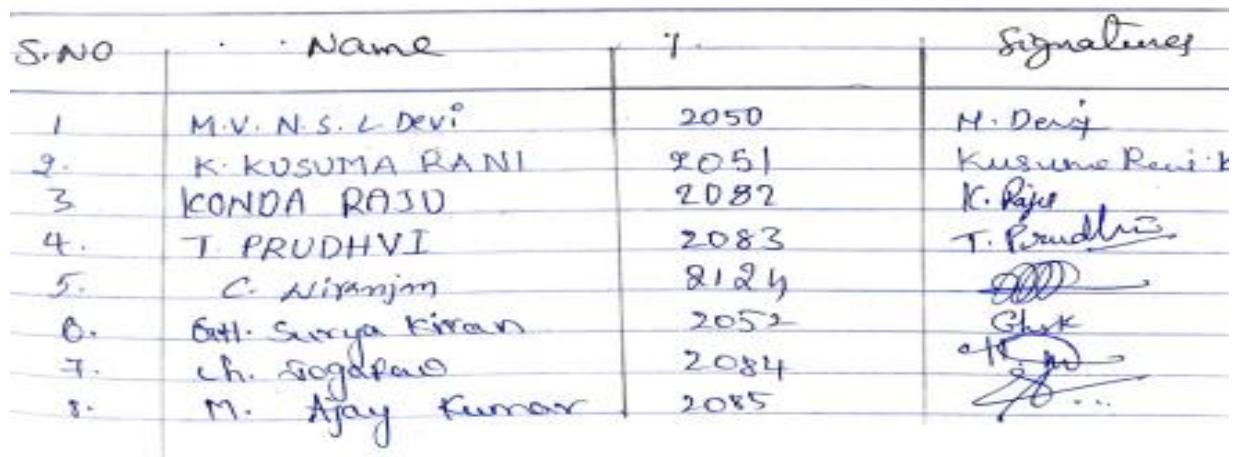 S.NO Name %. Signatures
1 M.V.N.S.L Devi 2050 M.Devi
2. K. KUSUMA RANI 2051 Kusuma Rani.K
3 KONDA RAJU 2082 K. Raju
4. T. PRUDHVI 2083 T. Prudhvi
5. C. Niranjan 2124
6. Surya Kiran 2052
7. ch. 2084
8. M. Ajay Kumar 2085